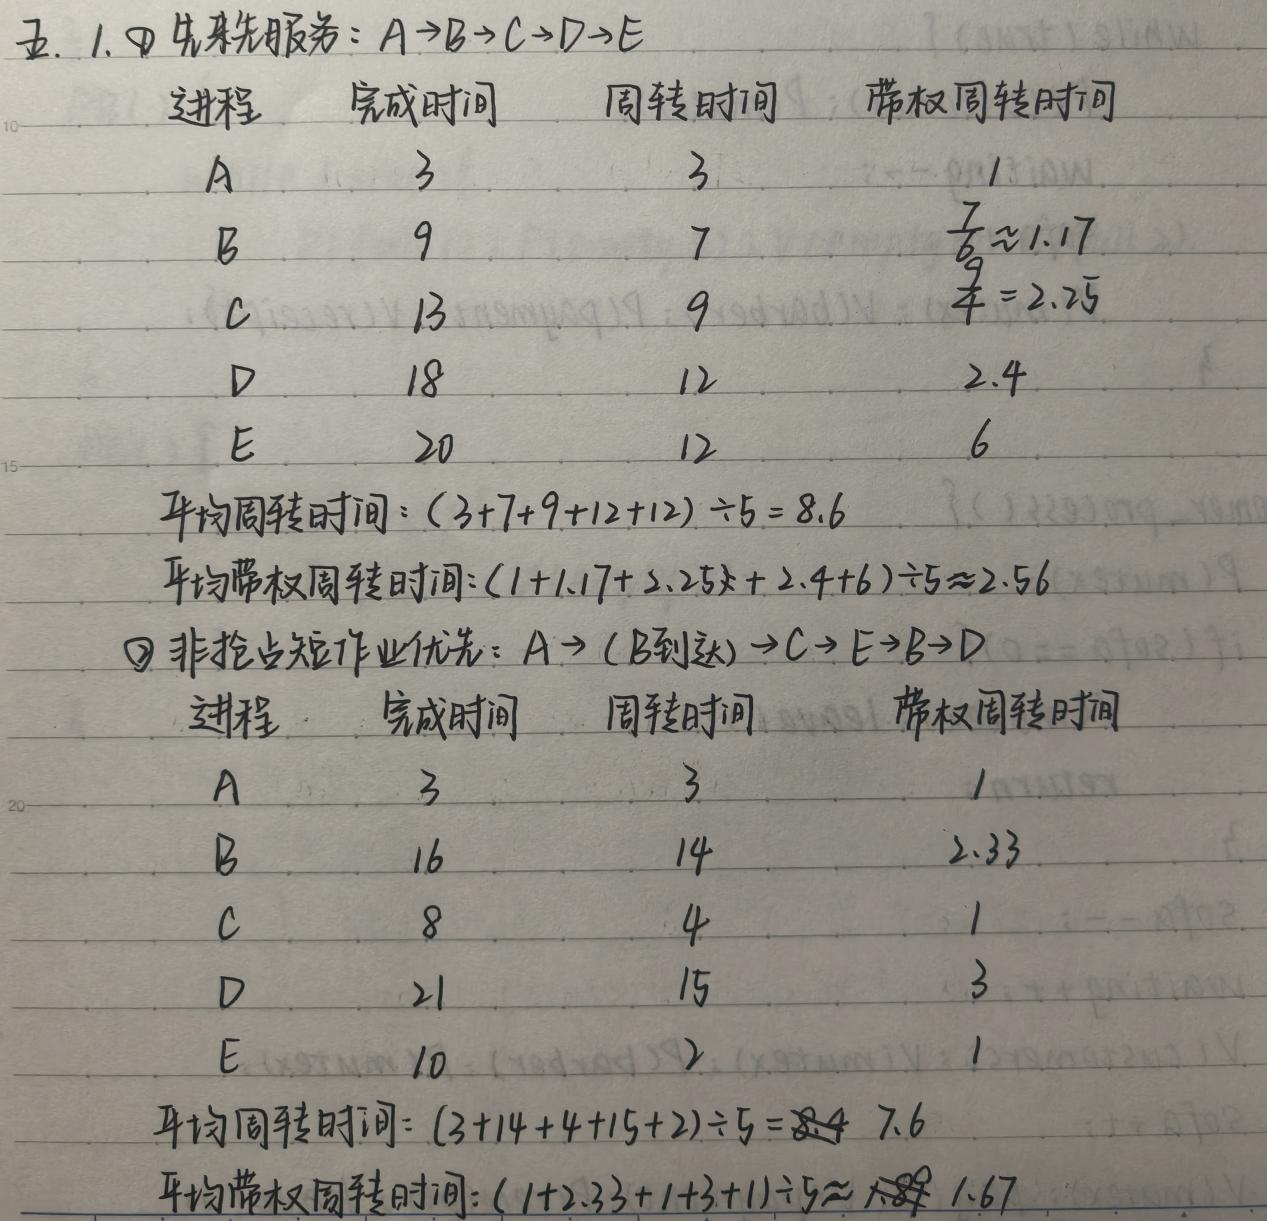 五. 1. ① 先来先服务: A→B→C→D→E
进程 完成时间 周转时间 带权周转时间
A 3 3 1
B 9 7 7/6≈1.17
C 13 9 9/4=2.25
D 18 12 2.4
E 20 12 6
平均周转时间: (3+7+9+12+12)÷5=8.6
平均带权周转时间: (1+1.17+2.25+2.4+6)÷5≈2.56
② 非抢占短作业优先: A→(B到达)→C→E→B→D
进程 完成时间 周转时间 带权周转时间
A 3 3 1
B 16 14 2.33
C 8 4 1
D 21 15 3
E 10 2 1
平均周转时间: (3+14+4+15+2)÷5= 7.6
平均带权周转时间: (1+2.33+1+3+1)÷5≈ 1.67